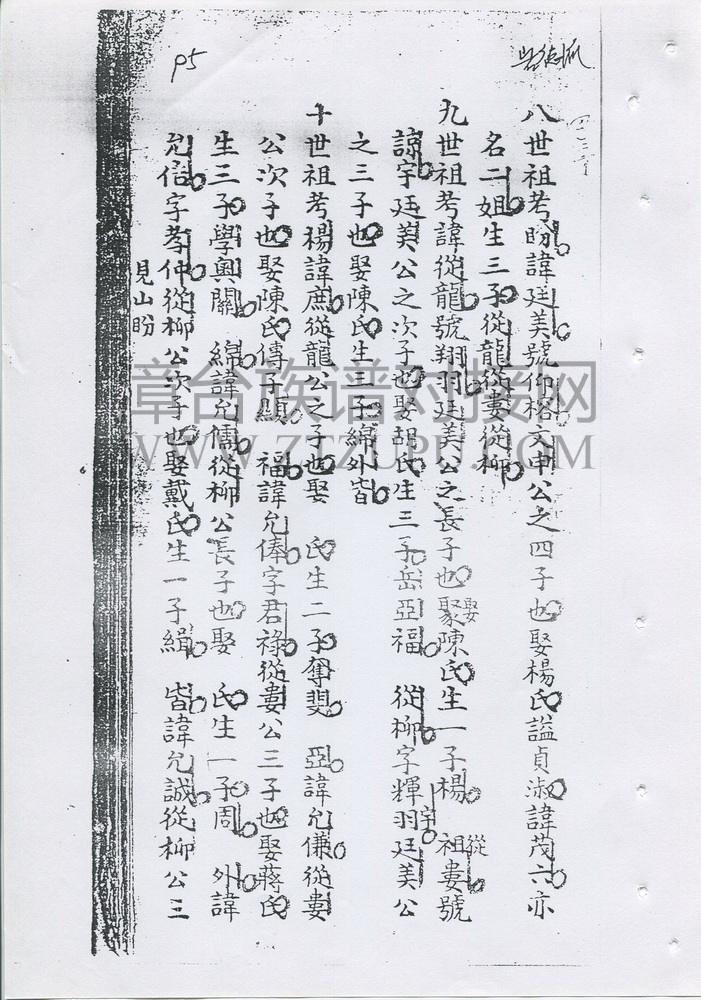 P5
八世祖考昐諱廷美號仰格文申公之四子也娶楊氏謚貞淑諱茂六亦
名二姐生三子從龍從婁從柳
九世祖考諱從龍號翔羽廷美公之長子也娶陳氏生一子楊 祖從婁號
諒宇廷美公之次子也娶胡氏生三子岳亞福 從柳字輝羽廷美公
之三子也娶陳氏生三子綿外皆
十世祖考楊諱庶從龍公之子也娶 氏生二子奪斐 亞諱允傔從婁
公次子也娶陳氏傳子顯 福諱允俸字君祿從婁公三子也娶蔣氏
生三子學輿關 綿諱允儒從柳公長子也娶 氏生一子周 外諱
允信字孝仲從柳公次子也娶戴氏生一子緝 皆諱允誠從柳公三
見山昐
章台族谱对接网
WWW.ZTZUPU.COM